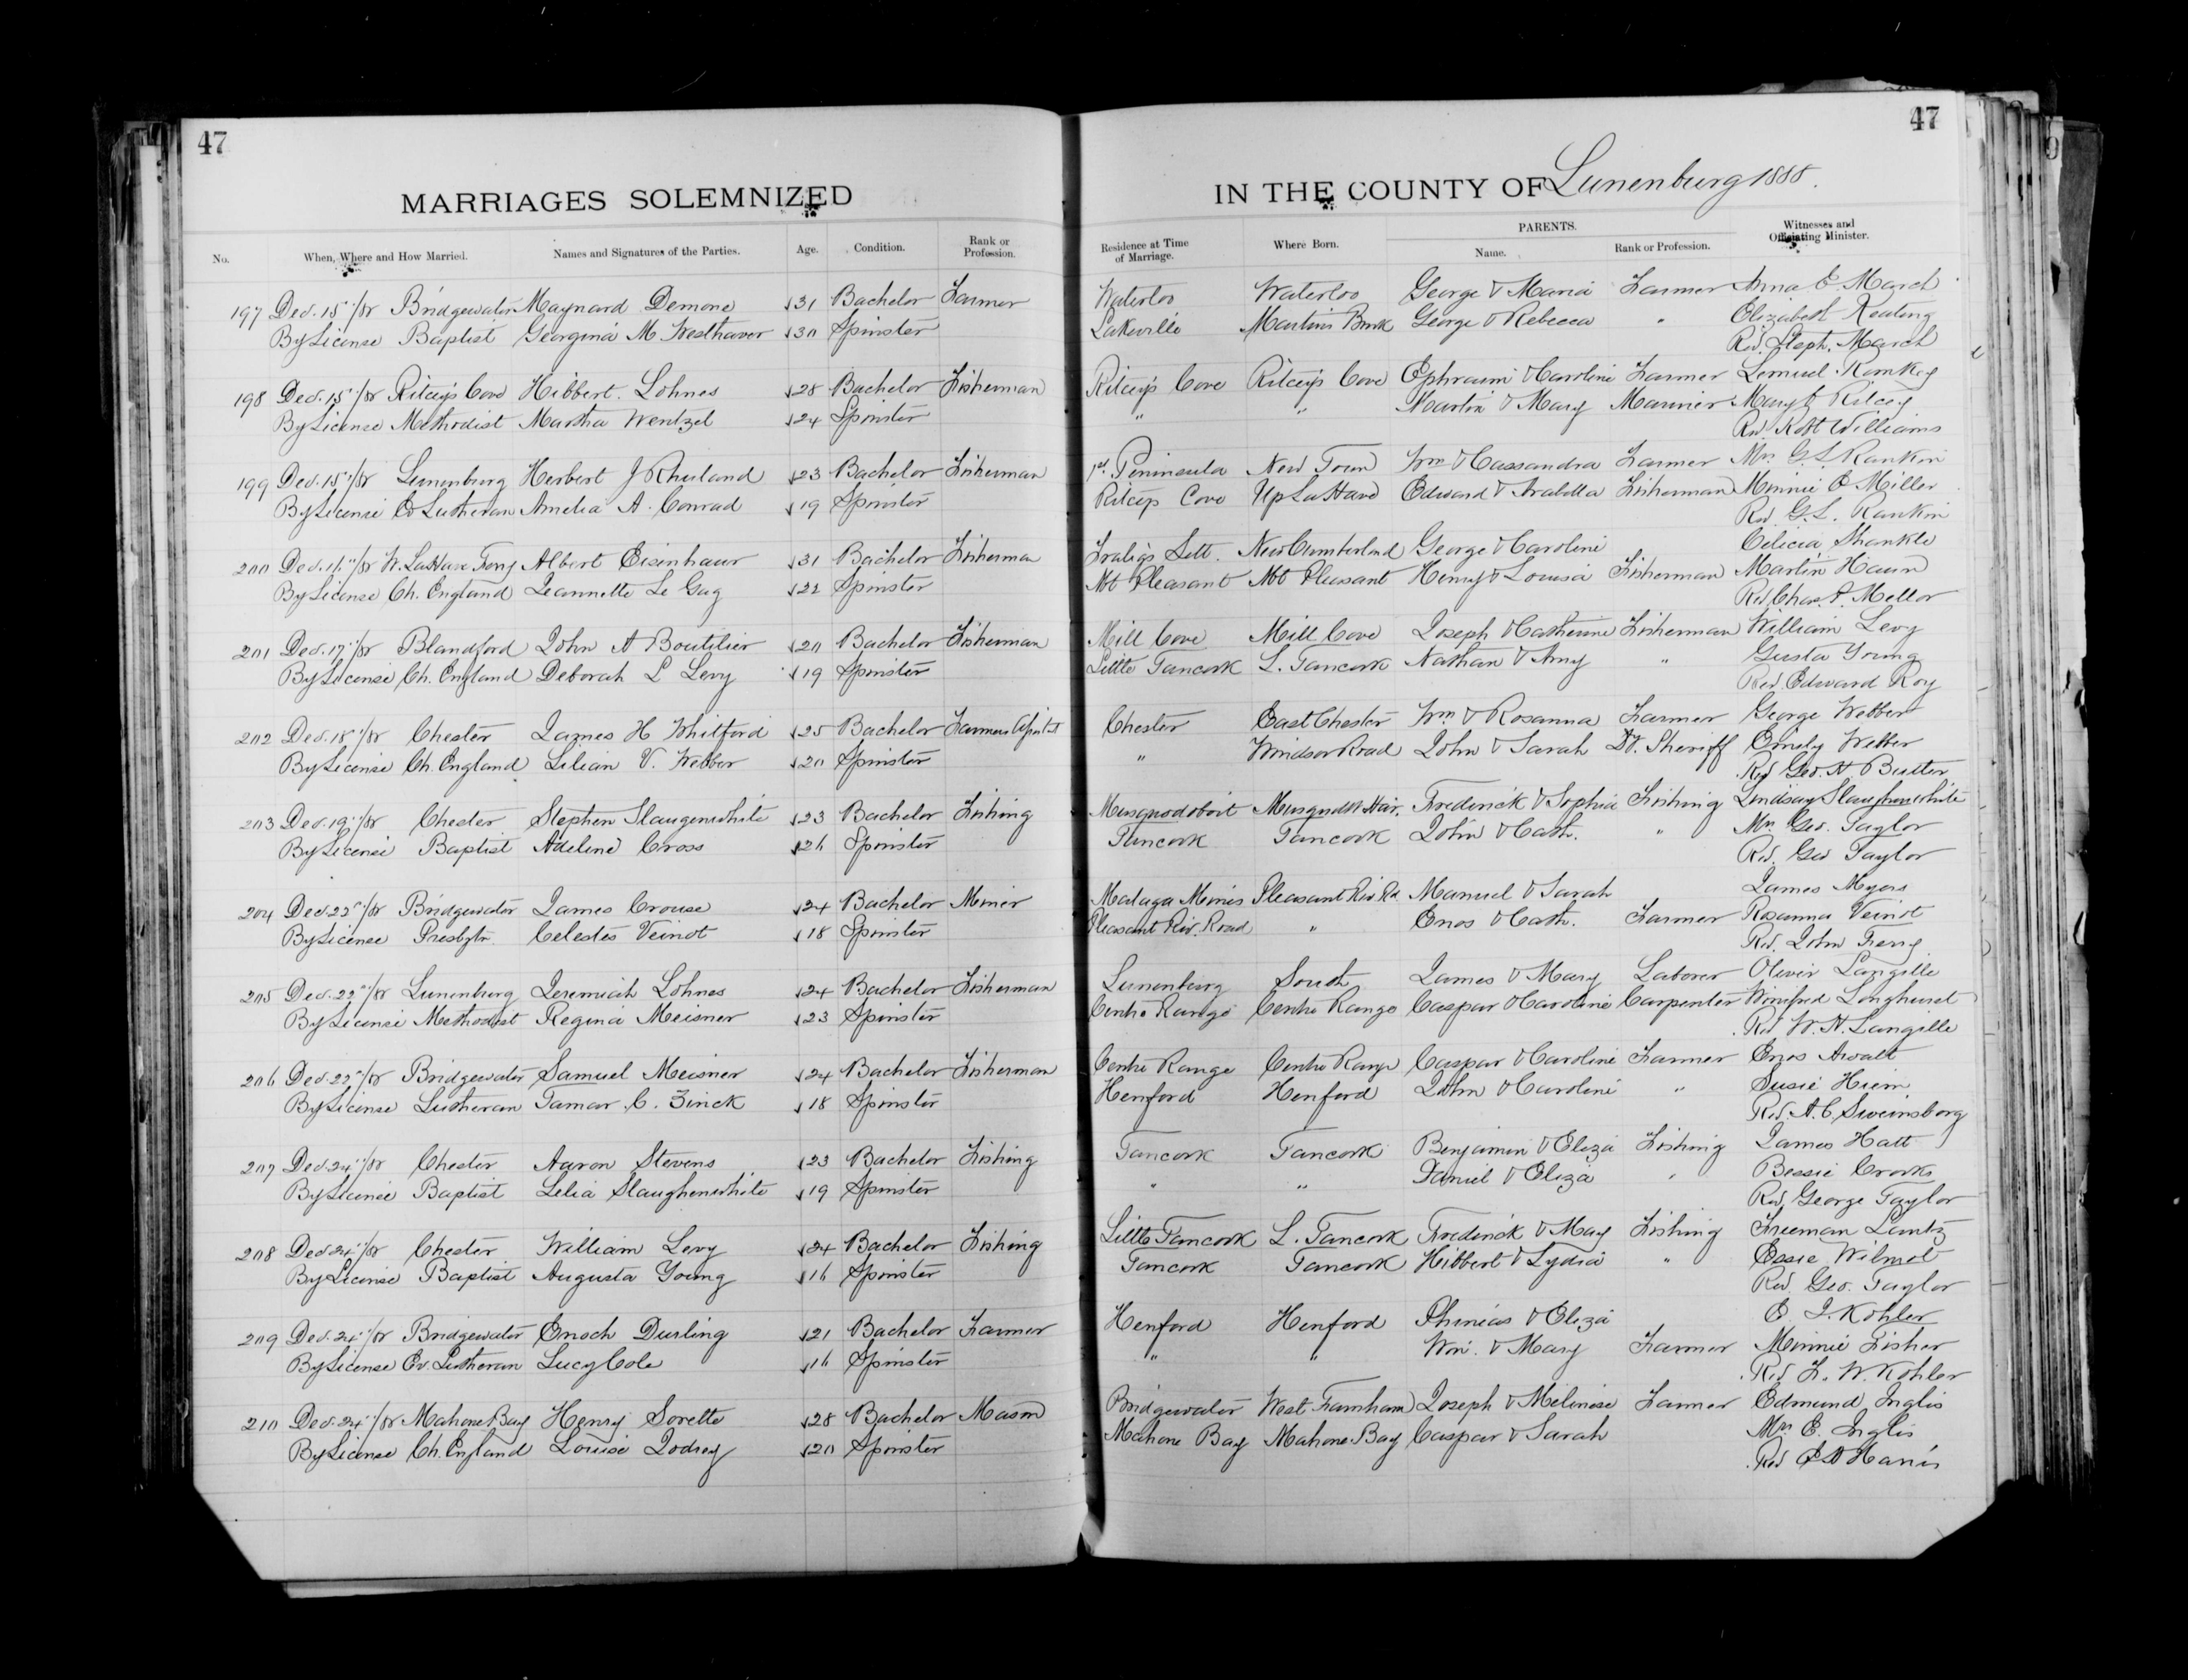 47
47
MARRIAGES SOLEMNIZED IN THE COUNTY OF Lunenburg 1888.
No. When, Where and How Married. Names and Signatures of the Parties. Age. Condition. Rank or Profession. Residence at Time of Marriage. Where Born. PARENTS. Name. Rank or Profession. Witnesses and Officiating Minister.
197 Dec. 15"/88 Bridgewater Maynard Demone 31 Bachelor Farmer Waterloo Waterloo George & Maria Farmer Anna E. March
By License Baptist Georgina M. Westhaver 30 Spinster Lakeville Martins Brook George & Rebecca " Elizabeth Keating
Rev. Steph. March
198 Dec. 15"/88 Ritcey's Cove Hibbert Lohnes 28 Bachelor Fisherman Ritcey's Cove Ritcey's Cove Ephraim & Caroline Farmer Lemuel Romkey
By License Methodist Martha Wentzel 24 Spinster " " Martin & Mary Mariner Mary Ritcey
Rev. Robt Williams
199 Dec. 15"/88 Lunenburg Herbert J Rhuland 23 Bachelor Fisherman 1st. Peninsula New Town Wm & Cassandra Farmer Mrs G L Rankin
By License Ev Lutheran Amelia A. Conrad 19 Spinster Ritceys Cove Up LaHave Edward & Arabella Fisherman Minnie E Miller
Rev G. L. Rankin
200 Dec. 16"/88 W. LaHave Ferry Albert Eisenhaur 31 Bachelor Fisherman Fralig's Sett. New Cumberland George & Caroline Celicia Shankle
By License Ch. England Jeannette Le Gay 22 Spinster Mt Pleasant Mt Pleasant Henry & Louisa Fisherman Martin Haun
Rev. Chas. P. Mellor
201 Dec. 17"/88 Blandford John A Boutilier 20 Bachelor Fisherman Mill Cove Mill Cove Joseph & Catherine Fisherman William Levy
By License Ch. England Deborah L Levy 19 Spinster Little Tancook L. Tancook Nathan & Amy " Gusta Young
Rev. Edward Roy
202 Dec. 18"/88 Chester James H Whitford 25 Bachelor Farmer Chester East Chester Wm & Rosanna Farmer George Webber
By License Ch. England Lilian V. Webber 20 Spinster " Windsor Road John & Sarah Dt. Sheriff Emily Webber
Rev Geo. H. Butler
203 Dec. 19"/88 Chester Stephen Slaugenwhite 23 Bachelor Fishing Musquodoboit Musquodt Har. Frederick & Sophia Fishing Lindsay Slaughenwhite
By License Baptist Adeline Cross 26 Spinster Tancook Tancook John & Cath. " Mrs Geo. Taylor
Rev. Geo Taylor
204 Dec. 22"/88 Bridgewater James Crouse 24 Bachelor Miner Malaga Mines Pleasant Riv Rd Manuel & Sarah James Myers
By License Presbytn. Celestes Veinot 18 Spinster Pleasant Riv. Road " Enos & Cath. Farmer Rosanna Veinot
Rev. John
205 Dec. 22"/88 Lunenburg Jeremiah Lohnes 24 Bachelor Fisherman Lunenburg South James & Mary Laborer Oliver Langille
By License Methodist Regina Meisner 23 Spinster Centre Range Centre Range Caspar & Caroline Carpenter Winifred Longhurst
Rev. W. H. Langille
206 Dec. 22"/88 Bridgewater Samuel Meisner 24 Bachelor Fisherman Centre Range Centre Range Caspar & Caroline Farmer Enos Awalt
By License Lutheran Tamar C. Zinck 18 Spinster Henford Henford John & Caroline " Susie Hiim
Rev. A. C Sweinsborg
207 Dec. 24"/88 Chester Aaron Stevens 23 Bachelor Fishing Tancook Tancook Benjamin & Eliza Fishing James Hatt
By License Baptist Lelia Slaughenwhite 19 Spinster " " Daniel & Eliza " Bessie Crooks
Rev. George Taylor
208 Dec. 24"/88 Chester William Levy 24 Bachelor Fishing Little Tancook L. Tancook Frederick & May Fishing Freeman Lantz
By License Baptist Augusta Young 16 Spinster Tancook Tancook Hibbert & Lydia " Essie Wilmot
Rev Geo. Taylor
209 Dec. 24"/88 Bridgewater Enoch Durling 21 Bachelor Farmer Henford Henford Phinias & Eliza E. J. Kohler
By License Ev. Lutheran Lucy Cole 16 Spinster " " Wm. & Mary Farmer Minnie Fisher
Rev F. W. Kohler
210 Dec. 24"/88 Mahone Bay Henry Sorette 28 Bachelor Mason Bridgewater West Farnham Joseph & Melinise Farmer Edmund Inglis
By License Ch. England Louise Zodrey 20 Spinster Mahone Bay Mahone Bay Caspar & Sarah Mrs E. Inglis
Rev E A Harris